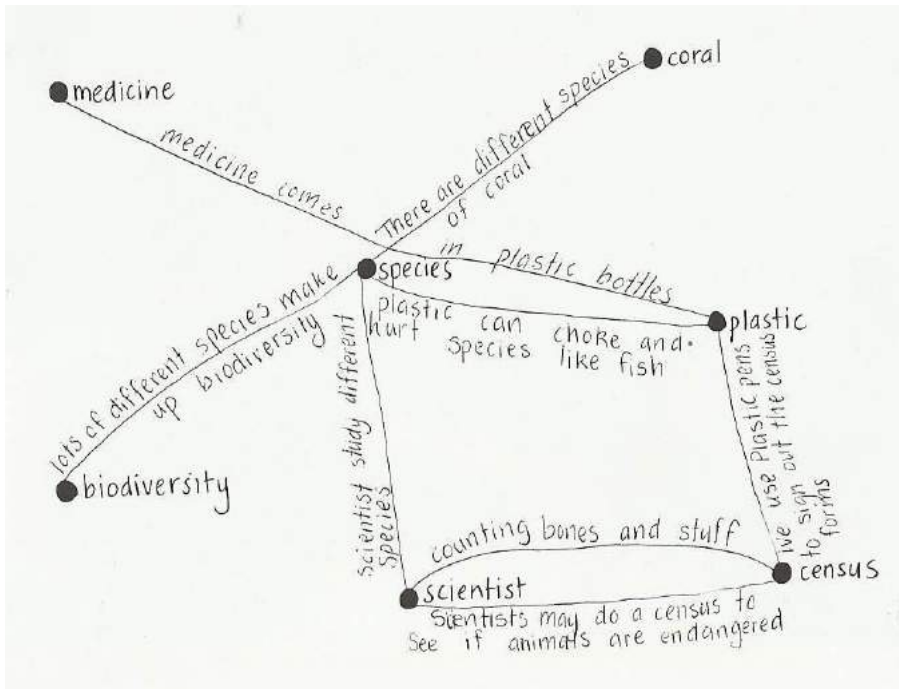 coral
medicine
There are different species
of coral
medicine comes in plastic bottles
species
plastic can choke and
hurt species like fish
plastic
lots of different species make
up biodiversity
biodiversity
Scientist study different
Species
we use Plastic pens
to sign out the census
forms
counting bones and stuff
scientist
census
Scientists may do a census to
See if animals are endangered